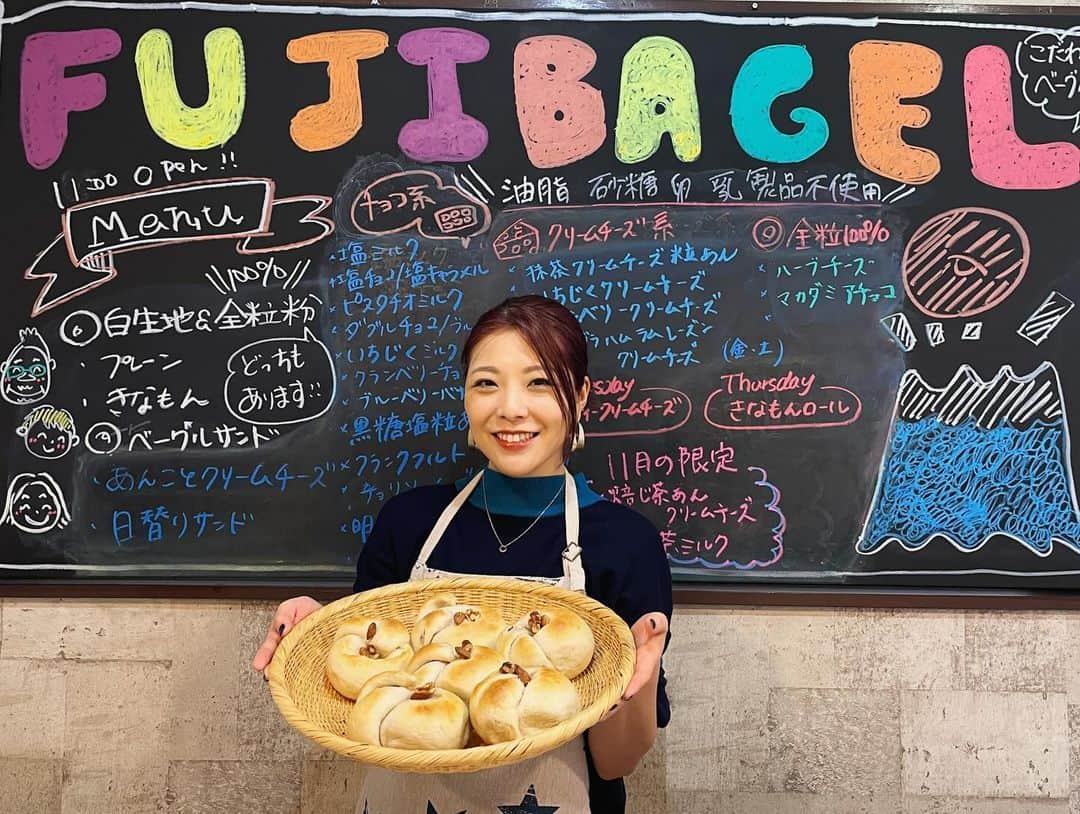 FUJIBAGEL
こだわ
ベーグル
Open !!
Menu
100%
⑥ 白生地&全粒粉
・プレーン
・きなもん
どっちも
あります!!
④ ベーグルサンド
・あんことクリームチーズ
・日替りサンド
チョコ系
×塩ミルク
×塩チョコ/塩キャラメル
×ピスタチオミルク
×ダブルチョコ/
×いちじくミルク
×クランベリーチョ
×ブルーベリー
×黒糖塩粒あ
×フランクフルト
×チョリソ
×明
油脂 砂糖 卵 乳製品不使用
クリームチーズ系
抹茶クリームチーズ粒あん
いちじくクリームチーズ
ベリークリームチーズ
ラムレーズン
クリームチーズ
(金・土)
全粒100%
×ハーブチーズ
×マカダミアチョコ
sday
クリームチーズ
Thursday
きなもんロール
11月の限定
焙じ茶あん
クリームチーズ
茶ミルク